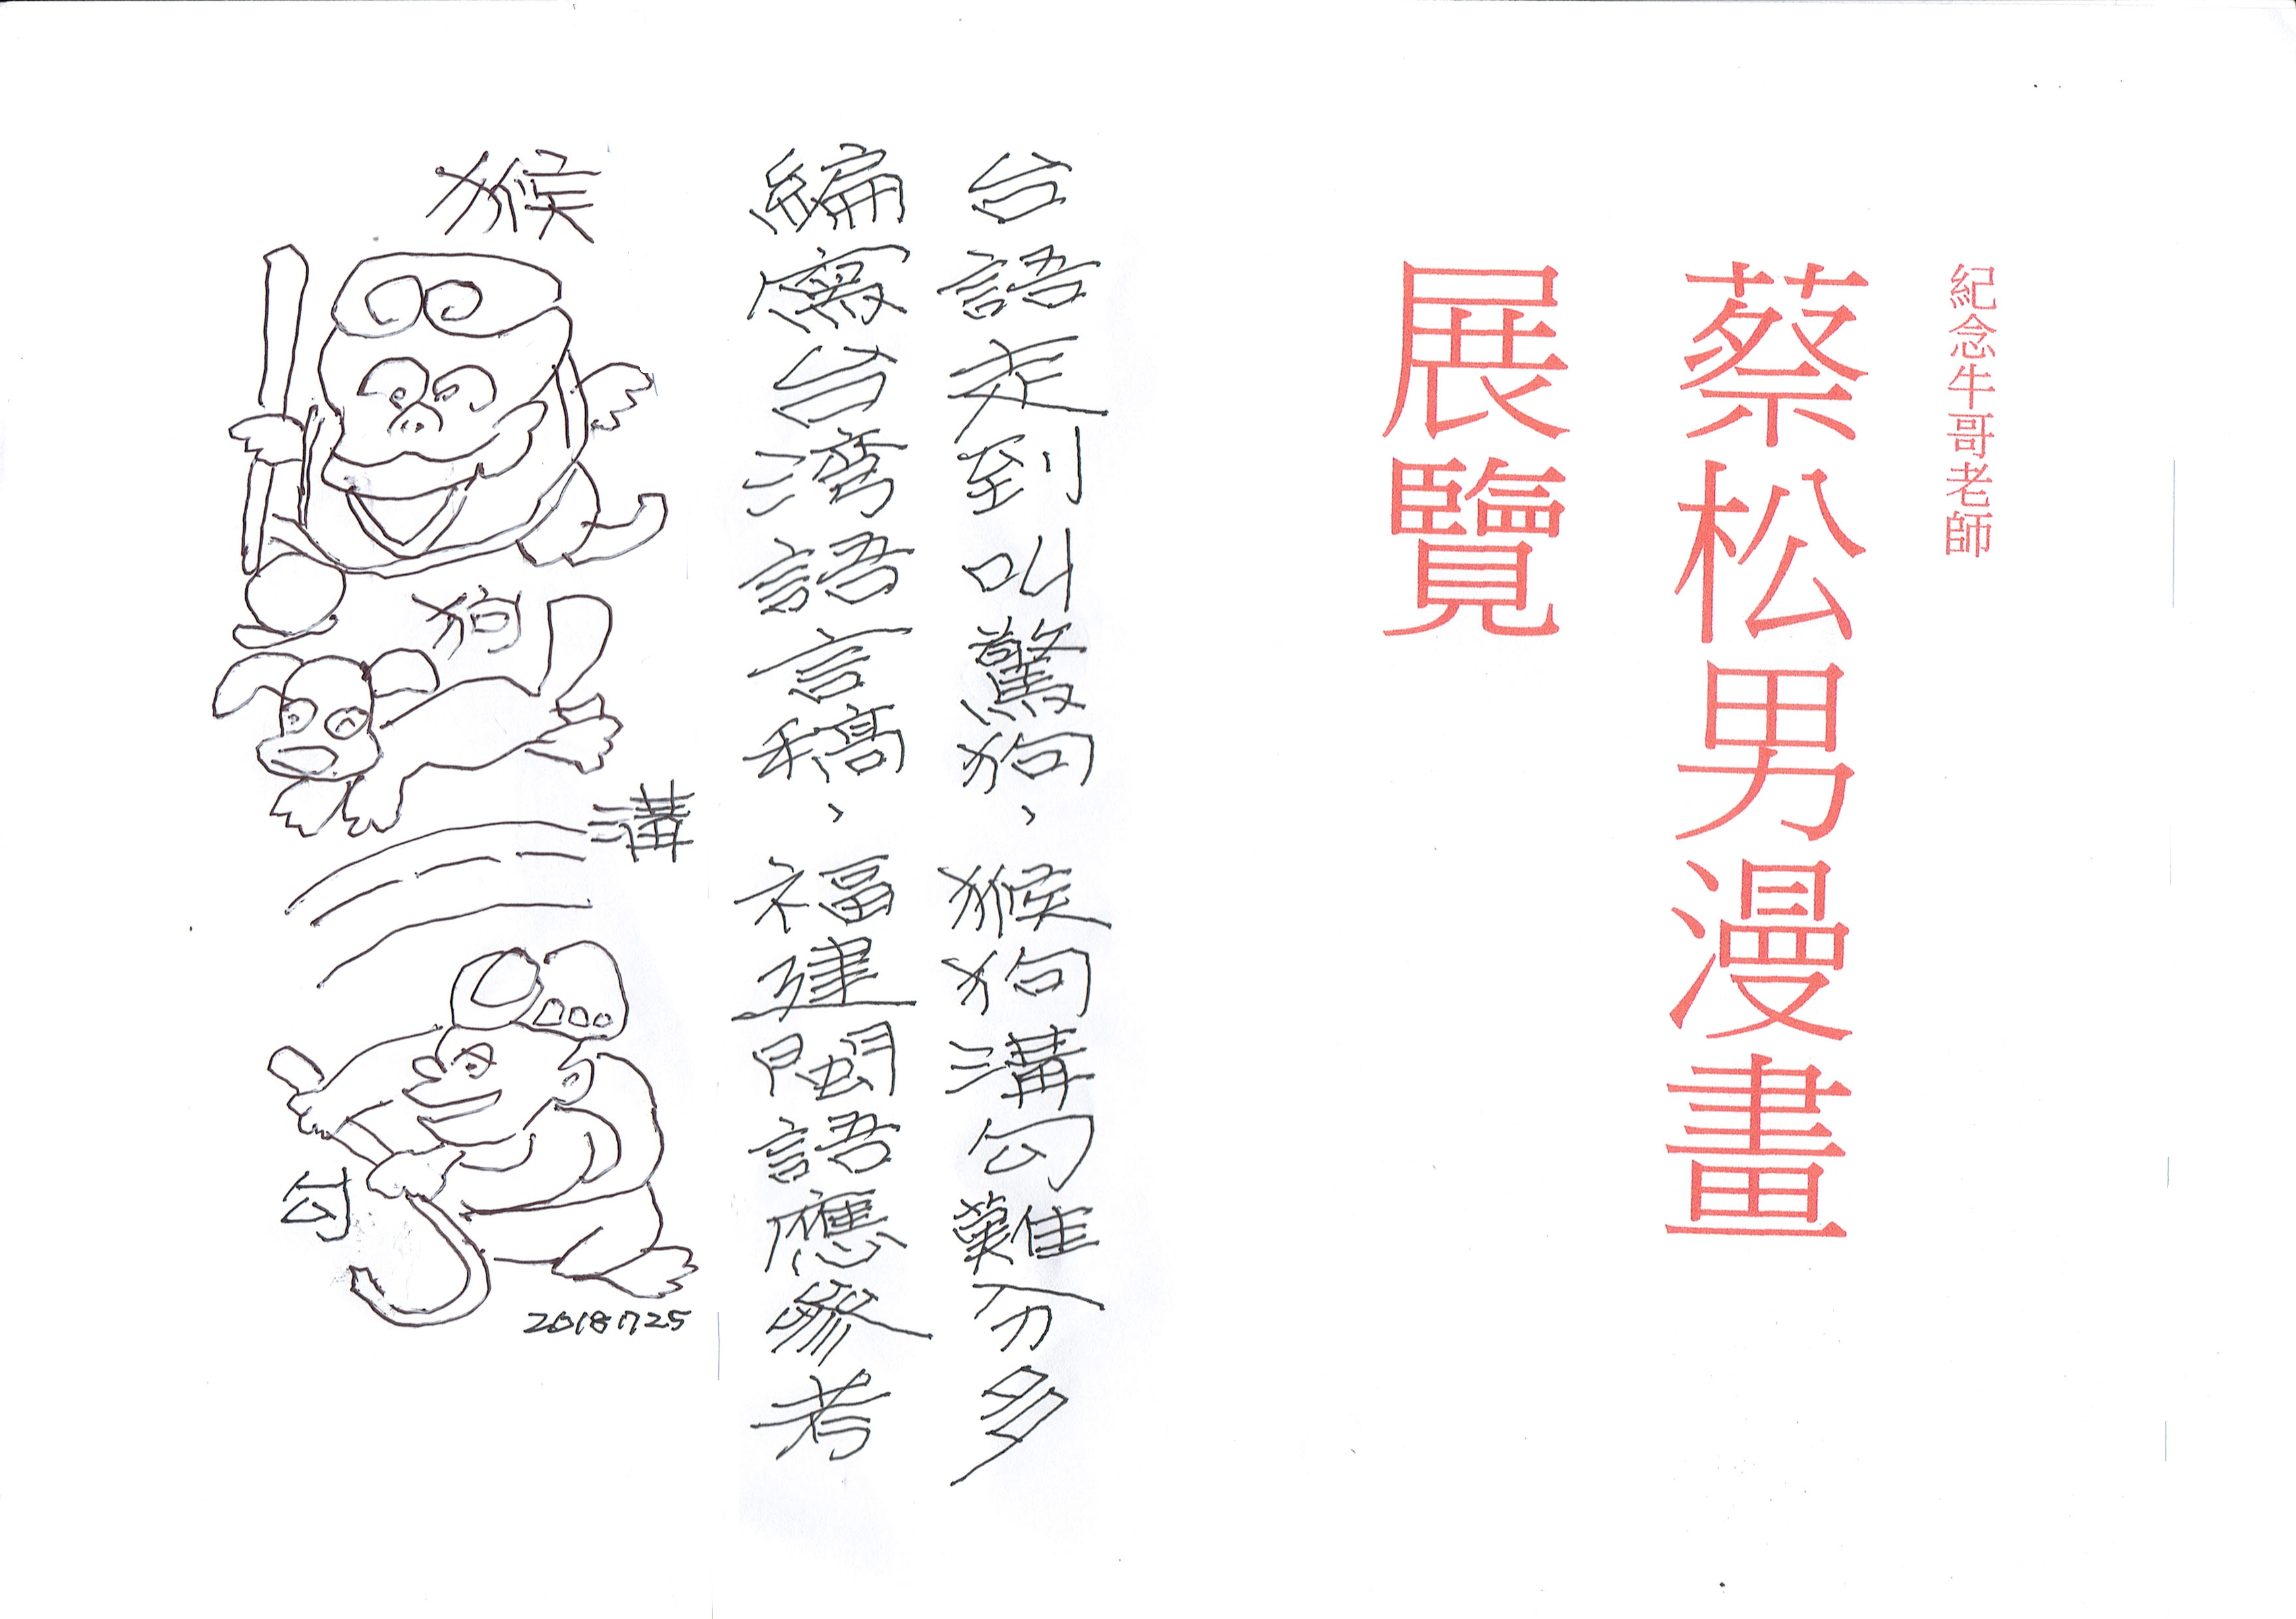 紀念牛哥老師
蔡松男漫畫
展覽
台語走到叫驚狗，猴狗溝勾難分多
編寫台湾語言稿，福建閩語應參考
猴
狗
溝
勾
2018725